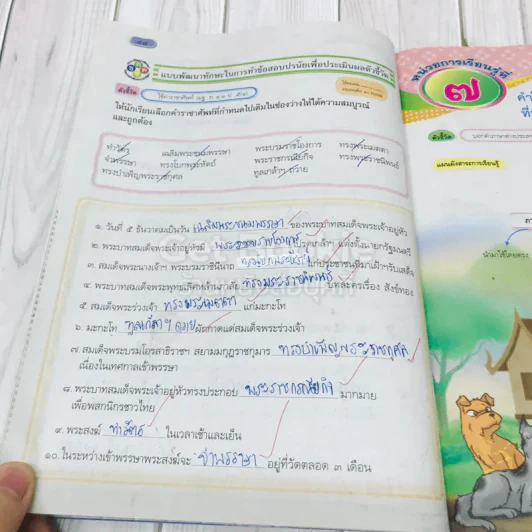 ๕๘
แบบพัฒนาทักษะในการทำข้อสอบปรนัยเพื่อประเมินผลตัวชี้วัด
ตัวชี้วัด
ให้นักเรียนเลือกคำราชาศัพท์ที่กำหนดไปเติมในช่องว่างให้ได้ความสมบูรณ์
และถูกต้อง
ทำวัตร เฉลิมพระชนมพรรษา พระบรมราชโองการ ทรงพระเมตตา
จำพรรษา พระราชกรณียกิจ ทรงพระราชนิพนธ์
ทรงบำเพ็ญพระราชกุศล ทูลเกล้าฯ ถวาย
๑. วันที่ ๕ ธันวาคมเป็นวัน เฉลิมพระชนมพรรษา ของพระบาทสมเด็จพระเจ้าอยู่หัว
๒. พระบาทสมเด็จพระเจ้าอยู่หัวมี พระบรมราชโองการ โปรดเกล้าฯ แต่งตั้งนายกรัฐมนตรี
๓. สมเด็จพระนางเจ้าฯ พระบรมราชินีนาถ แก่ประชาชนที่มาเฝ้าฯรับเสด็จ
๔. พระบาทสมเด็จพระพุทธเลิศหล้านภาลัย ทรงพระราชนิพนธ์ บทละครเรื่อง สังข์ทอง
๕. สมเด็จพระร่วงเจ้า ทรงพระเมตตา แก่มะกะโท
๖. มะกะโท ทูลเกล้าฯ ถวาย ผักกาดแด่สมเด็จพระร่วงเจ้า
๗. สมเด็จพระบรมโอรสาธิราชฯ สยามมกุฎราชกุมาร ทรงบำเพ็ญพระราชกุศล
เนื่องในเทศกาลเข้าพรรษา
๘. พระบาทสมเด็จพระเจ้าอยู่หัวทรงประกอบ พระราชกรณียกิจ มากมาย
เพื่อพสกนิกรชาวไทย
๙. พระสงฆ์ ทำวัตร ในเวลาเช้าและเย็น
๑๐. ในระหว่างเข้าพรรษาพระสงฆ์จะ จำพรรษา อยู่ที่วัดตลอด ๓ เดือน
หน่วยการเรียนรู้ที่
๗
ตัวชี้วัด
แผนผังสาระการเรียนรู้